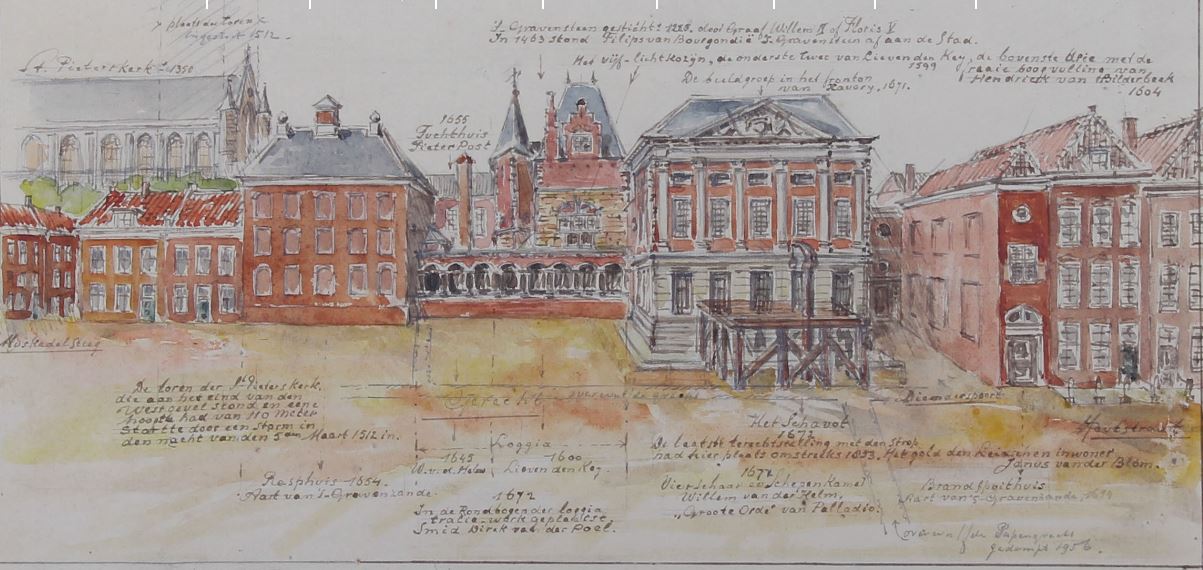 plaats der toren
ingestort 1512.
St. Pieterskerk ± 1350
's-Gravensteen gesticht ± door Graaf Willem II of Floris V
In 1463 stond Filips van Bourgondië 's-Gravenstein af aan de Stad.
Het vijf-lichtkozijn, de onderste twee van Lieven den Key, de bovenste drie met de
1599
fraaie boogvulling van
Hendrick van Bilderbeek
1604
De beeldgroep in het fronton
van Xavory, 1671.
1655
Tuchthuis
Pieter Post
De toren der St Pieterskerk.
die aan het eind van den
Westgevel stond en eene
hoogte had van 110 meter
Stortte door een storm in
den nacht van den 5den Maart 1512 in.
Gerecht
Loggia
1645
W.v.d. Helm
1600
Lieven den Key.
Rasphuis 1654.
Aart van 's-Gravenzande.
1672
In de Rondbogen der loggia
tralie-werk geplaatst
Smid Dirck van der Poel.
Het Schavot
1672
De laatste terechtstelling met den strop
had hier plaats omstreeks 1853. Het gold den Leidschen inwoner
Janus van der Blom.
1671
Vierschaar en Schepenkamer
Willem van der Helm.
"Groote Orde" van Palladio.
Diemaerspoort
Houtstraat
Brandspuithuis
Aart van 's-Gravenzande
overwulfde Papengracht
gedempt 1956.